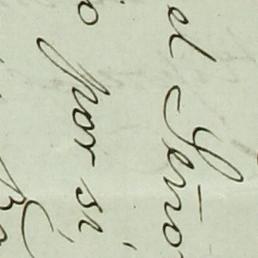 el Seño
o por si